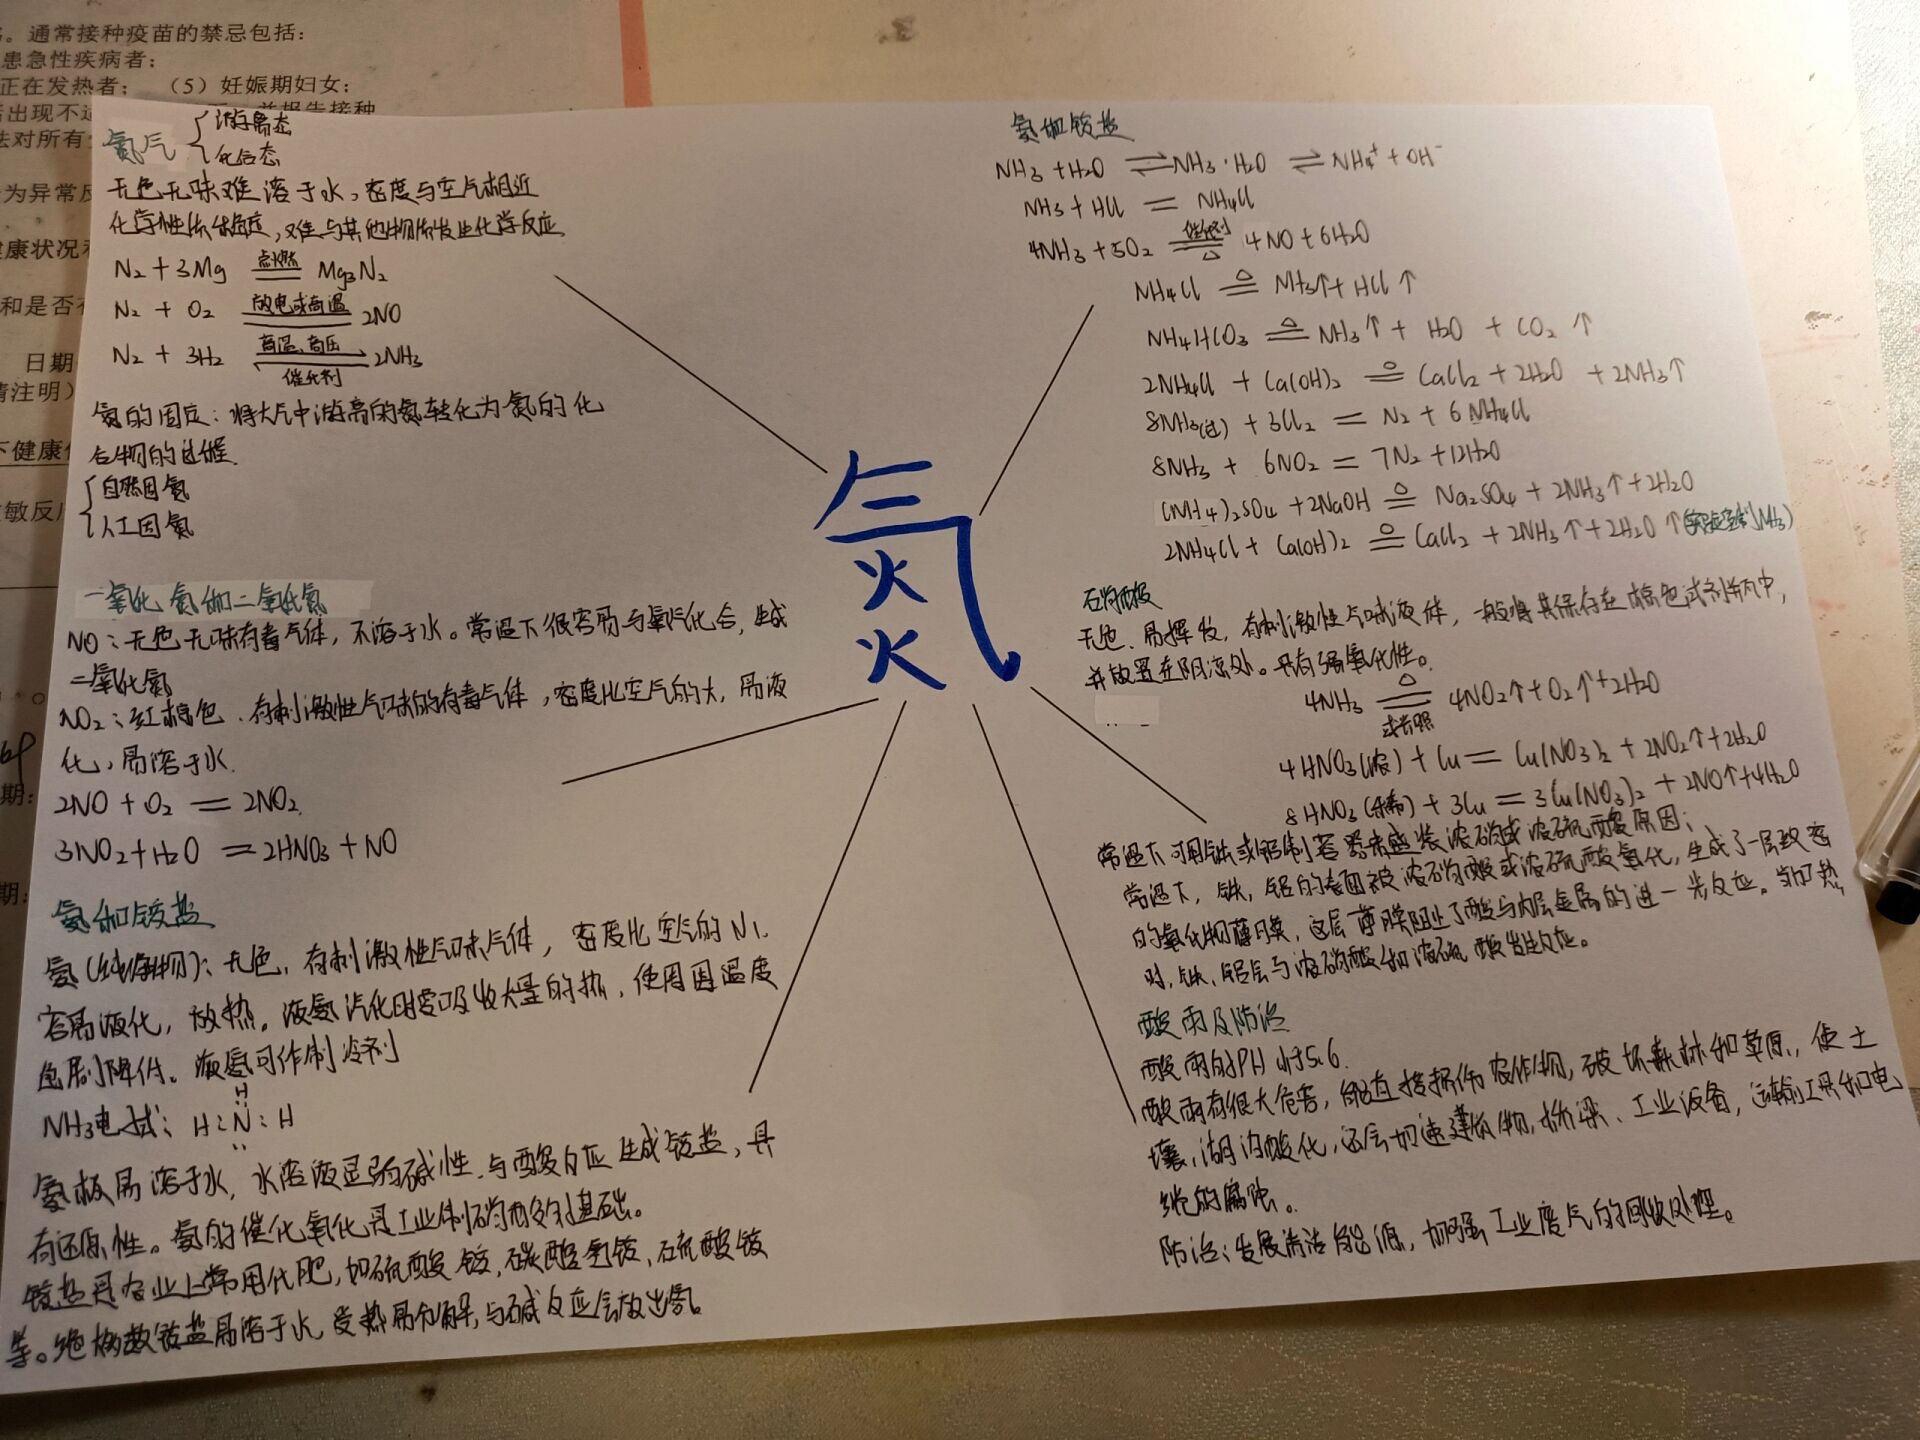 通常接种疫苗的禁忌包括:
患急性疾病者;
正在发热者; (5) 妊娠期妇女;
出现不适
并报告接种
法对所有
为异常反
健康状况和
和是否有
日期
请注明)
下健康
敏反应
期:
期:
氮气 { 游离态
化合态
无色无味难溶于水,密度与空气相近
化学性质稳定,难与其他物质发生化学反应
N₂ + 3Mg 点燃 Mg₃N₂
N₂ + O₂ 放电或高温 2NO
N₂ + 3H₂ 高温、高压 催化剂 2NH₃
氮的固定:将大气中游离的氮转化为氮的化
合物的过程.
{ 自然固氮
人工固氮
一氧化氮和二氧化氮
NO:无色无味有毒气体,不溶于水。常温下很容易与氧气化合,生成
二氧化氮
NO₂:红棕色、有刺激性气味的有毒气体,密度比空气的大,易液
化,易溶于水.
2NO + O₂ = 2NO₂
3NO₂+H₂O = 2HNO₃ + NO
氨和铵盐
氨(纯净物):无色,有刺激性气味气体,密度比空气的小.
容易液化,放热。液氨汽化时要吸收大量的热,使周围温度
急剧降低。液氨可作制冷剂
NH₃电子式: H:N:H
H
氨极易溶于水,水溶液显弱碱性,与酸反应生成铵盐,具
有还原性。氨的催化氧化是工业制硝酸的基础。
铵盐是农业上常用化肥,如硫酸铵,碳酸氢铵、硫酸铵
等。绝大多数铵盐易溶于水,受热易分解,与碱反应会放出氨。
氮
氨和铵盐
NH₃ + H₂O ⇌ NH₃·H₂O ⇌ NH₄⁺ + OH⁻
NH₃ + HCl = NH₄Cl
4NH₃ + 5O₂ 催化剂 △ 4NO + 6H₂O
NH₄Cl △ NH₃↑ + HCl ↑
NH₄HCO₃ △ NH₃↑ + H₂O + CO₂ ↑
2NH₄Cl + Ca(OH)₂ △ CaCl₂ + 2H₂O + 2NH₃↑
8NH₃(过) + 3Cl₂ = N₂ + 6NH₄Cl
8NH₃ + 6NO₂ = 7N₂ + 12H₂O
(NH₄)₂SO₄ + 2NaOH △ Na₂SO₄ + 2NH₃↑ + 2H₂O
2NH₄Cl + Ca(OH)₂ △ CaCl₂ + 2NH₃↑ + 2H₂O ↑(实验室制NH₃)
硝酸
无色、易挥发,有刺激性气味液体,一般将其保存在棕色试剂瓶中,
并放置在阴凉处。具有强氧化性。
4NH₃ △ 或光照 4NO₂↑ + O₂↑ + 2H₂O
4HNO₃(浓) + Cu = Cu(NO₃)₂ + 2NO₂↑ + 2H₂O
8HNO₃(稀) + 3Cu = 3Cu(NO₃)₂ + 2NO↑ + 4H₂O
常温下可用铁或铝制容器来盛装浓硝酸或浓硫酸原因:
常温下,铁,铝的表面被浓硝酸或浓硫酸氧化,生成了一层致密
的氧化物薄膜,这层薄膜阻止了酸与内层金属的进一步反应。当加热
时,铁、铝会与浓硝酸和浓硫酸发生反应。
酸雨及防治
酸雨的PH小于5.6.
酸雨有很大危害,能直接损伤农作物,破坏森林和草原,使土
壤,湖泊酸化,还会加速建筑物,桥梁、工业设备,运输工具和电
缆的腐蚀。
防治:发展清洁能源,加强工业废气的回收处理。